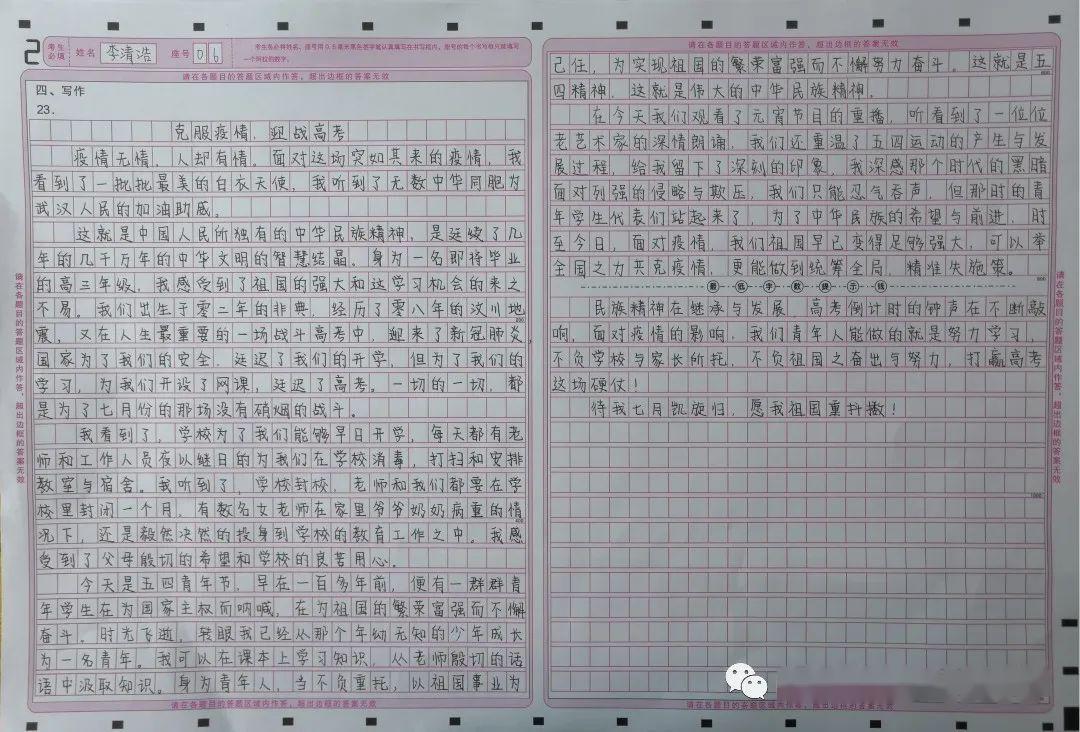 2
考生必填
姓名 李清浩 座号 06
考生务必将姓名、座号用0.5毫米黑色签字笔认真填写在书写框内，座号的每个书写框只能填写
一个阿拉伯数字。
请在各题目的答题区域内作答，超出边框的答案无效
四、写作
23.
克服疫情，迎战高考
疫情无情，人却有情。面对这场突如其来的疫情，我
看到了一批批最美的白衣天使，我听到了无数中华同胞为
武汉人民的加油助威。
这就是中国人民所独有的中华民族精神，是延续了几
年的几千万年的中华文明的智慧结晶。身为一名即将毕业
的高三年级，我感受到了祖国的强大和这学习机会的来之
不易。我们出生于零二年的非典，经历了零八年的汶川地
200
震，又在人生最重要的一场战斗高考中，迎来了新冠肺炎，
国家为了我们的安全，延迟了我们的开学，但为了我们的
学习，为我们开设了网课，延迟了高考。一切的一切，都
是为了七月份的那场没有硝烟的战斗。
我看到了，学校为了我们能够早日开学，每天都有老
师和工作人员夜以继日的为我们在学校消毒，打扫和安排
教室与宿舍。我听到了，学校封校，老师和我们都要在学
校里封闭一个月，有数名女老师在家里爷爷奶奶病重的情
400
况下，还是毅然决然的投身到学校的教育工作之中。我感
受到了父母殷切的希望和学校的良苦用心。
今天是五四青年节，早在一百多年前，便有一群群青
年学生在为国家主权而呐喊，在为祖国的繁荣富强而不懈
奋斗。时光飞逝，转眼我已经从那个年幼无知的少年成长
为一名青年。我可以在课本上学习知识，从老师殷切的话
语中汲取知识。身为青年人，当不负重托，以祖国事业为
请在各题目的答题区域内作答，超出边框的答案无效
请在各题目的答题区域内作答，超出边框的答案无效
请在各题目的答题区域内作答，超出边框的答案无效
己任，为实现祖国的繁荣富强而不懈努力奋斗。这就是五
四精神，这就是伟大的中华民族精神。
在今天我们观看了元宵节目的重播，听看到了一位位
老艺术家的深情朗诵，我们还重温了五四运动的产生与发
展过程，给我留下了深刻的印象，我深感那个时代的黑暗
面对列强的侵略与欺压，我们只能忍气吞声，但那时的青
年学生代表们站起来了，为了中华民族的希望与前进，时
至今日，面对疫情，我们祖国早已变得足够强大，可以举
全国之力共克疫情，更能做到统筹全局，精准失施策。
800
最低字数提示线
民族精神在继承与发展，高考倒计时的钟声在不断敲
响，面对疫情的影响，我们青年人能做的就是努力学习，
不负学校与家长所托，不负祖国之奋出与努力，打赢高考
这场硬仗！
待我七月凯旋归，愿我祖国重抖擞！
1000
请在各题目的答题区域内作答，超出边框的答案无效
请在各题目的答题区域内作答，超出边框的答案无效